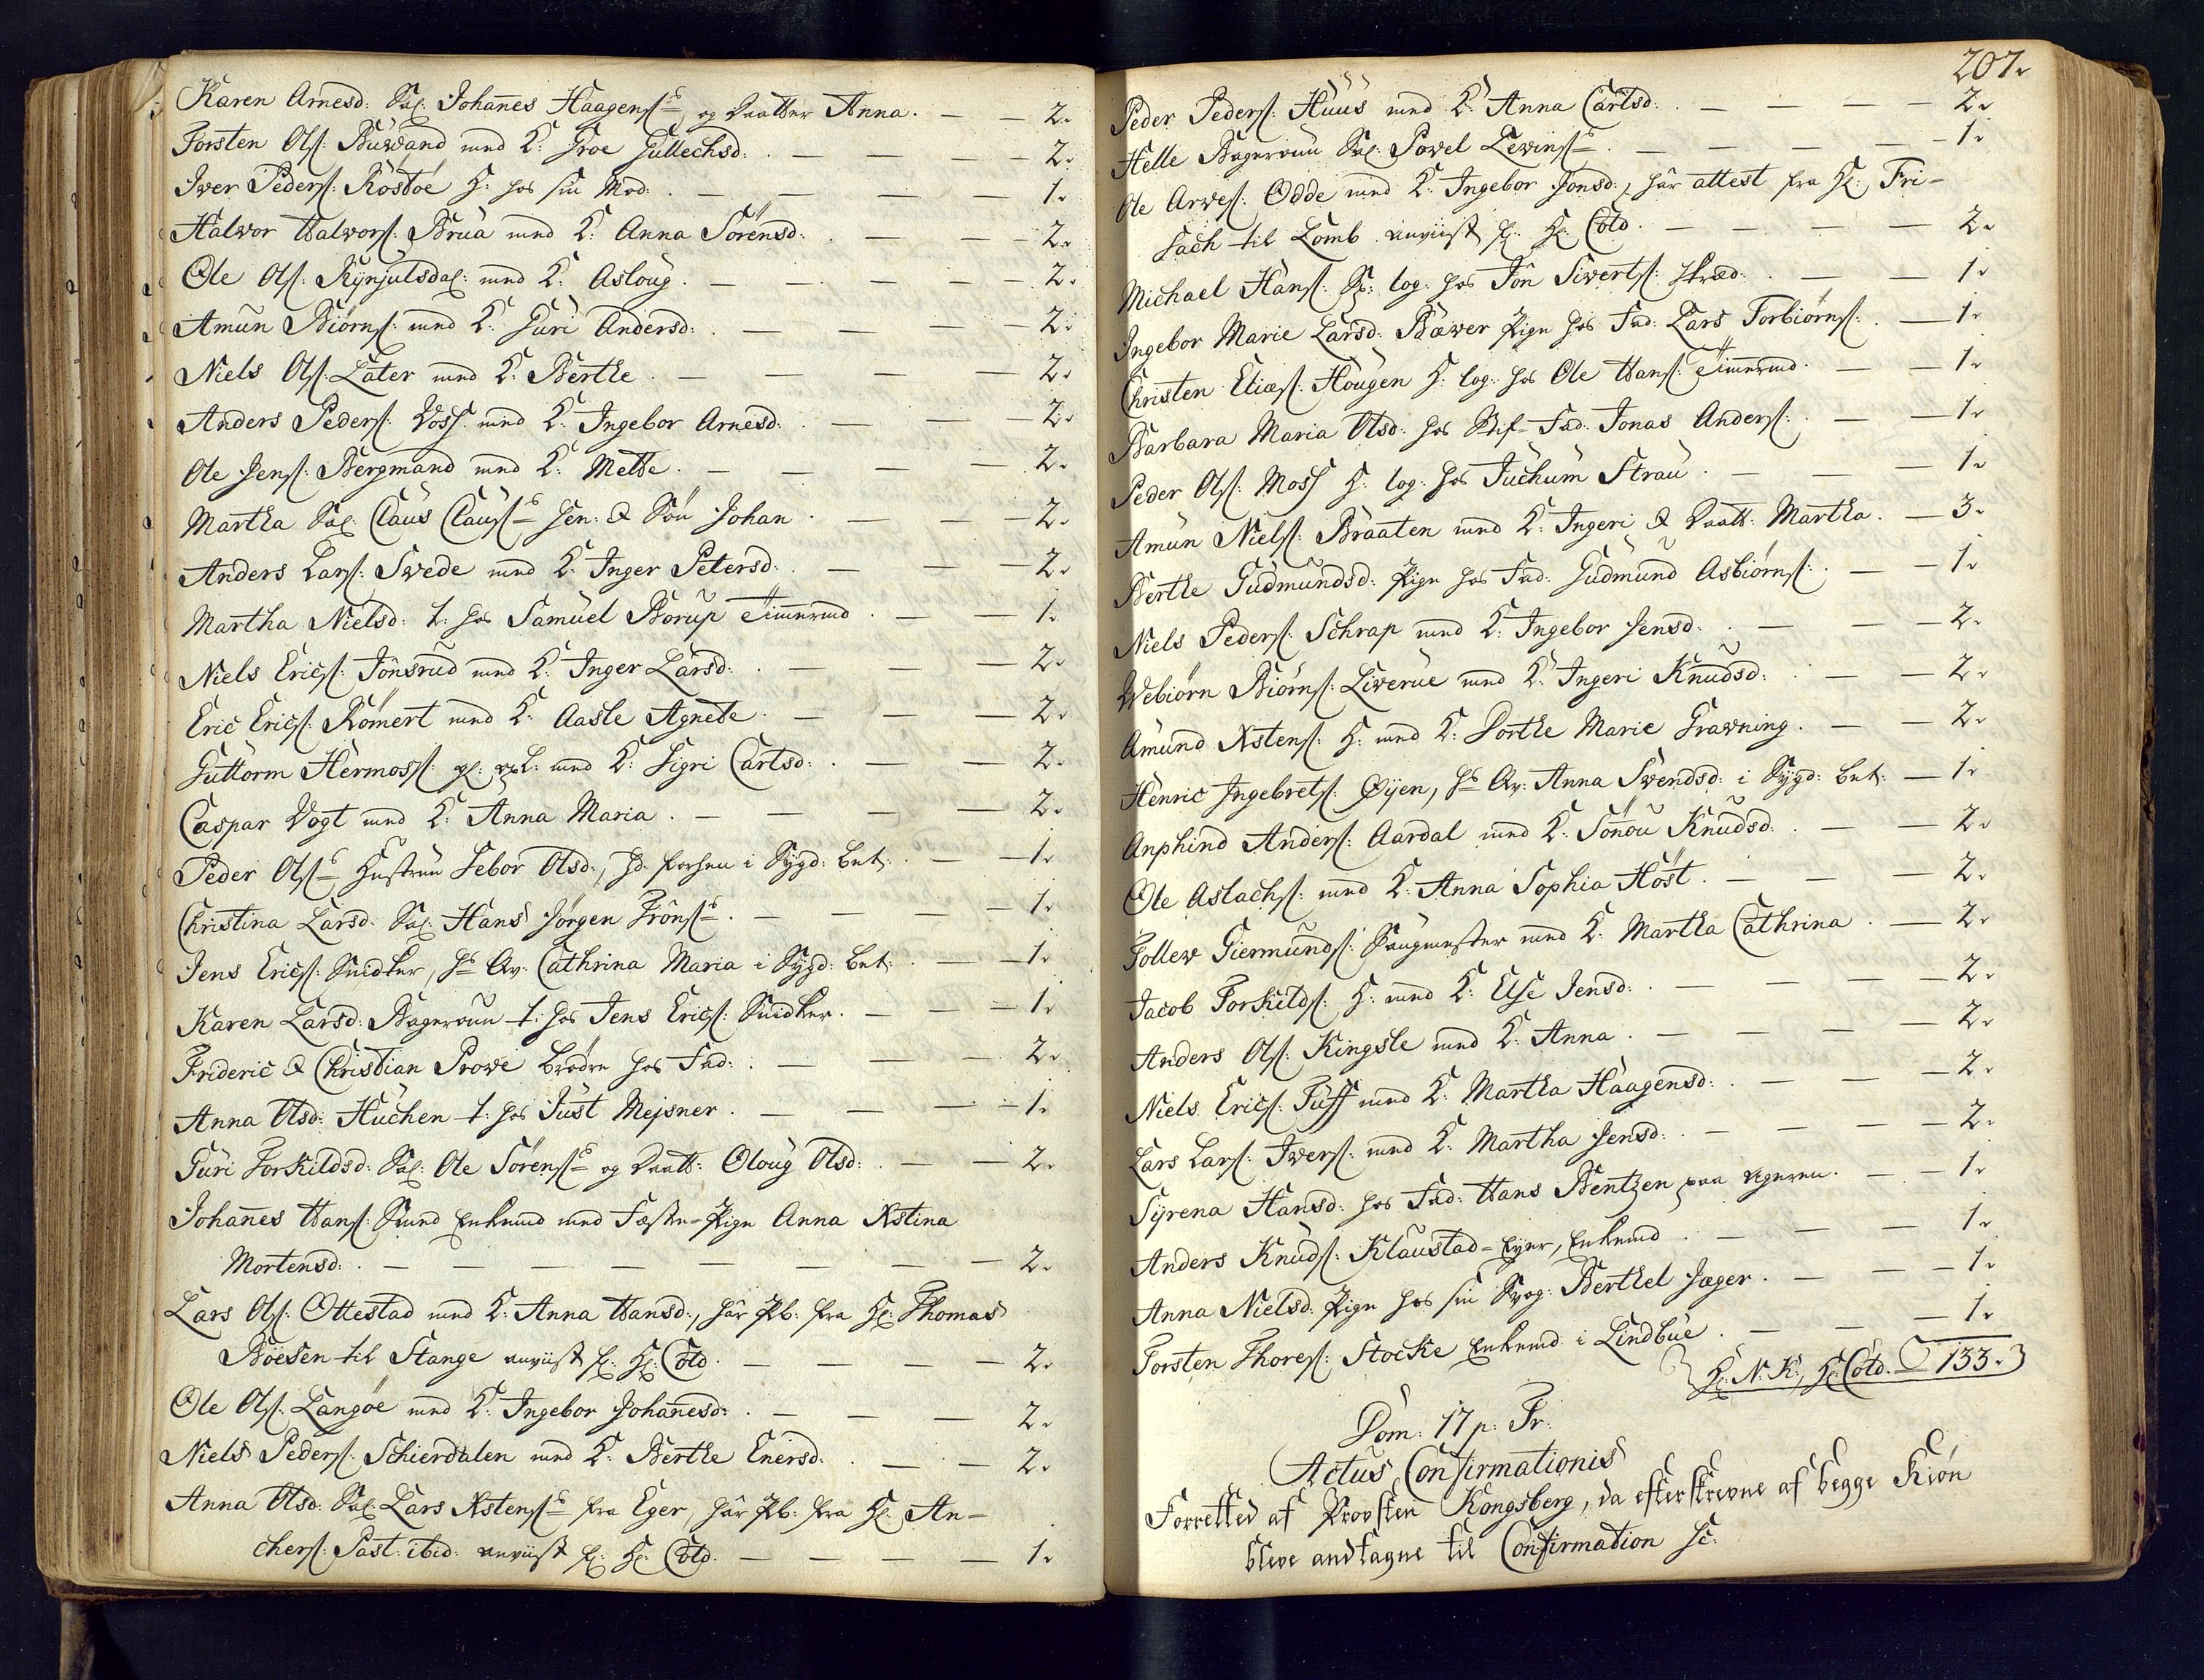 Karen Arnesd: Sal: Johan̄es Haagenss og Daatter Anna. — — 2.
Torsten Ols: Buwand med K: Groe Gullechsd: — — — — 2.
Iver Peders: Röstöe H: hos sin Mod: — — — — 1.
Halvor Halvors: Brua med K: Anna Sörensd: — — — 2.
Ole Ols: Rynjulsdal: med K: Asloug. — — — — 2.
Amun Biörns: med K: Guri Andersd: — — — — 2.
Niels Ols: Later med K: Berthe. — — — — 2.
Anders Peders: Voss. med K: Ingebor Arnesd: — — — 2.
Ole Jens: Bergmand med K: Mette. — — — — 2.
Martha Sal: Claus Clauss Sen: & Sön Johan — — — 2.
Anders Lars: Svede med K: Inger Petersd: — — — 2.
Martha Nielsd: t: hos Samuel Borup Tim̄ermd — — 1.
Niels Erics: Jonsrud med K: Inger Larsd: — — — 2.
Eric Erics: Römert med K: Aasle Agnete. — — — 2.
Guttorm Hermoss: med K: Sigri Carlsd: — — 2.
Caspar Vogt med K: Anna Maria. — — — — 2.
Peder Olss Hustrue Sebor Olsd:, i Sygd: bet: — — 1.
Christina Larsd: Sal: Hans Jörgen Tröns — — — — 1.
Jens Erics: Snidker, hs Qv: Cathrina Maria i Sygd: bet: — — 1.
Karen Larsd: Bagerouu t: hos Jens Erics: Snidker. — — — 1.
Frideric & Christian Prowe brödre hos Fad: — — — 2.
Anna Olsd: Huchen t: hos Just Mejsner. — — — — 1.
Guri Torkildsd: Sal: Ole Sörenss og Daatt: Oloug Olsd: — — 2.
Johan̄es Hans: Sund Enkemd med Fæste-Pige Anna Xstina
Mortensd: — — — — — — — — 2.
Lars Ols: Ottestad med K: Anna Hansd:, har Pb: fra Hr: Thomas
Böesen til Stange anviist f: Hr: Cold. — — — — 2.
Ole Ols: Langöe med K: Ingebor Johan̄esd: — — — 2.
Niels Peders: Schierdalen med K: Berthe Enersd: — — — 2.
Anna Olsd: Sal: Lars Xstenss fra Eger, har Pb: fra Hr: An-
chers: Past: ibid: anviist f: Hr: Cold. — — — — 1.
207.
Peder Peders: Huus med K: Anna Carlsd: — — — — 2.
Helle Bagerouu Sal: Povel Levinss — — — — — 1.
Ole Arves: Odde med K: Ingebor Jonsd:, har attest fra Hr: Fri-
sach til Lomb anviist f: Hr: Cold. — — — — 2.
Michael Hans: Sp: log: hos Jon Siverts: skræd: — — — 1.
Ingebor Marie Larsd: Bæver Pige hos Fad: Lars Torbiörns: — 1.
Christen Elias: Hougen H: log: hos Ole Hans: Tim̄ermd. — — 1.
Barbara Maria Olsd: hos Stif-Fad: Jonas Anders: — — 1.
Peder Ols: Moss H: log: hos Juchum Strau. — — — 1.
Amun Niels: Braaten med K: Ingeri & Daatt: Martha. — 3.
Berthe Gudmundsd: Pige hos Fad: Gudmund Asbiörns: — — 1.
Niels Peders: Schrap med K: Ingebor Jensd: — — — 2.
Webiörn Biörns: Liverue med K: Ingeri Knudsd: — — 2.
Amund Xstens: H: med K: Dorthe Marie Gravning. — — 2.
Henric Ingebrets: Øyen, hs Qv: Anna Svendsd: i Sygd: bet: — 1.
Anphind Anders: Aardal med K: Sönou Knudsd: — — 2.
Ole Aslachs: med K: Anna Sophia Höst. — — — 2.
Tollew Giermunds: Saugmester med K: Martha Cathrina — 2.
Jacob Torkilds: H: med K: Else Jensd: — — — — 2.
Anders Ols: Kingsle med K: Anna. — — — — 2.
Niels Erics: Tuff med K: Martha Haagensd: — — — 2.
Lars Lars: Ivers: med K: Martha Jensd: — — — — 2.
Syrena Hansd: hos Fad: Hans Bentzen paa Ageren. — — 1.
Anders Knuds: Klaustad-Eyer, Enkemd — — — — 1.
Anna Nielsd: Pige hos sin Svog: Berthel Jæger. — — — 1.
Torsten Thores: Stocke Enkemd i Lindbue. — — — 1.
Hr: N: K:, Hr: Cold. — 133.
Dom: 17 p: Tr:
Actus Confirmationis
Forretted af Provsten Kongsberg, da efterskrevne af begge Kiøn
bleve andtagne til Confirmation Sc: